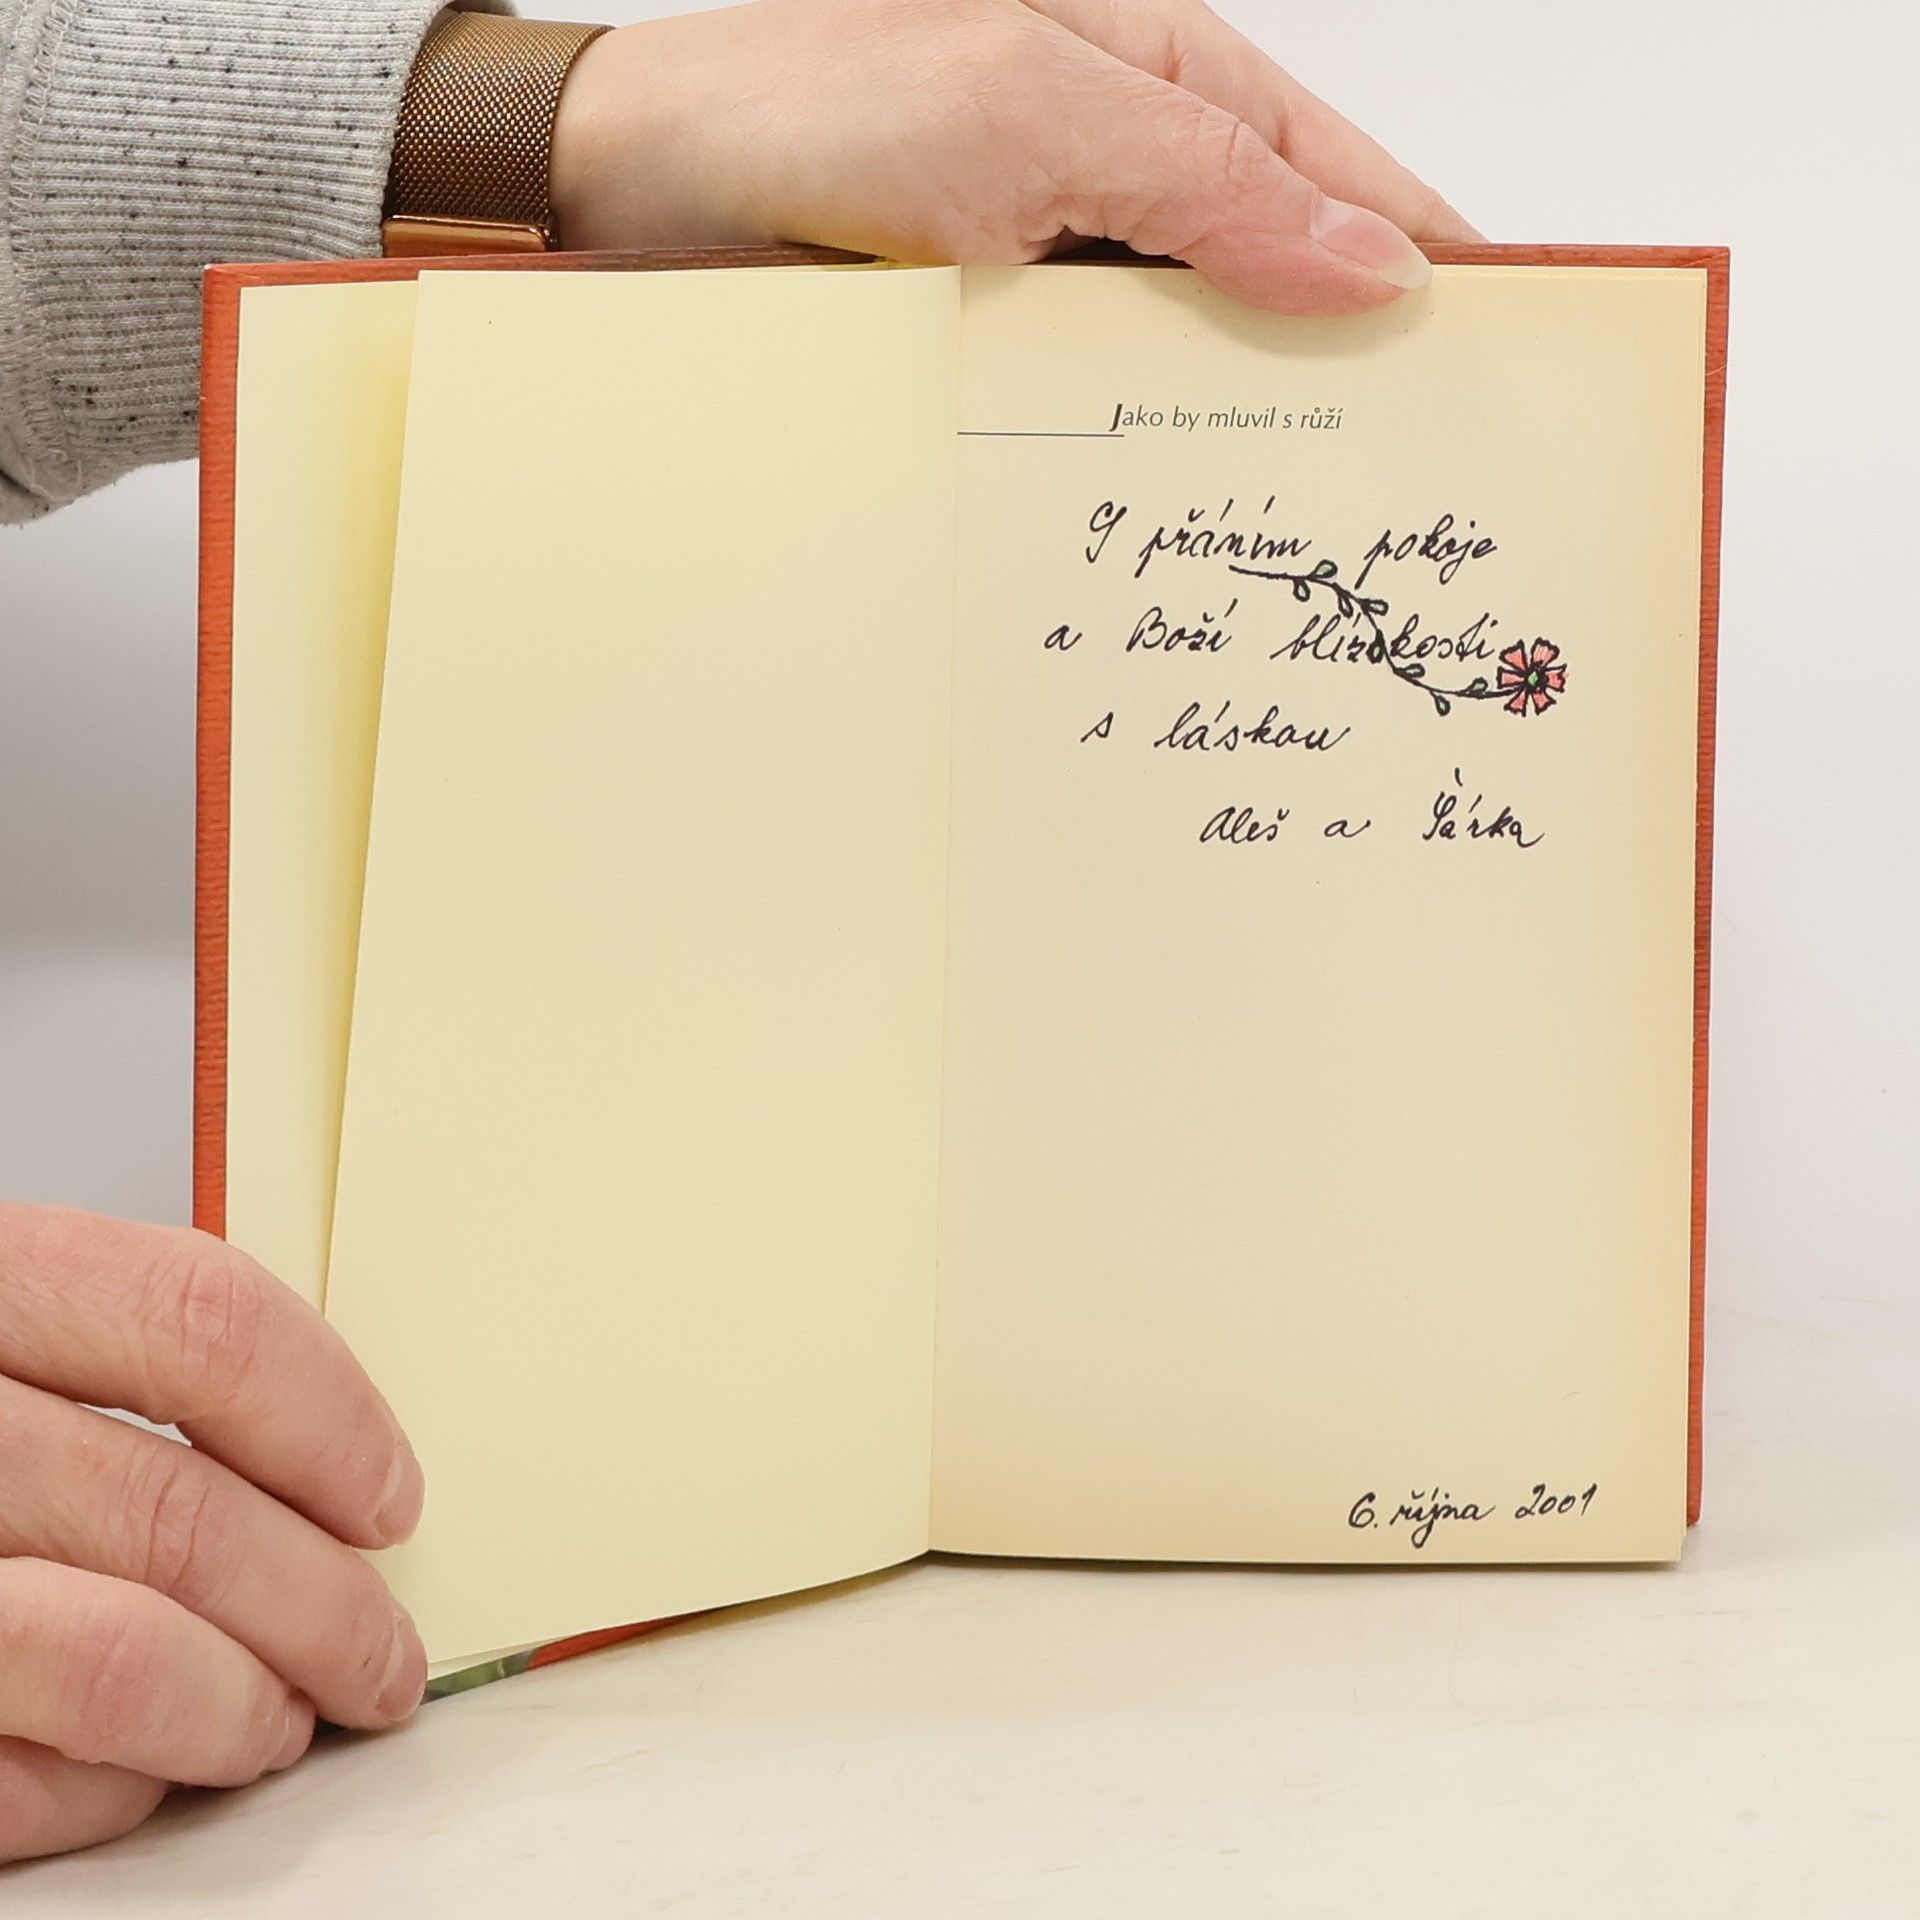 Jako by mluvil s růží
S přáním pokoje
a Boží blízkosti
s láskou
Aleš a Šárka
6. října 2001